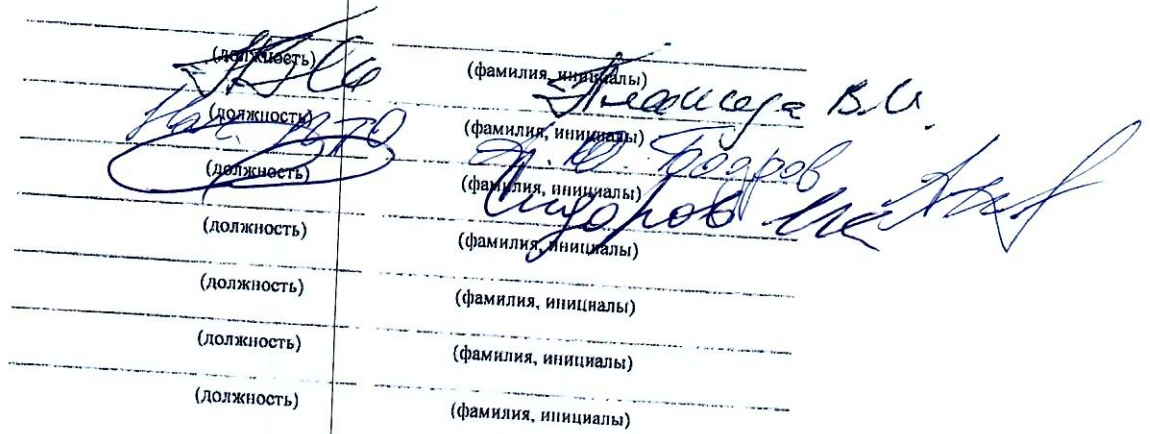 (должность) (фамилия, инициалы)
В.И.
(должность) (фамилия, инициалы)
Нач. ВТО А.Ю. Бодров
(должность) (фамилия, инициалы)
Сидоров
(должность) (фамилия, инициалы)
(должность) (фамилия, инициалы)
(должность) (фамилия, инициалы)
(должность) (фамилия, инициалы)